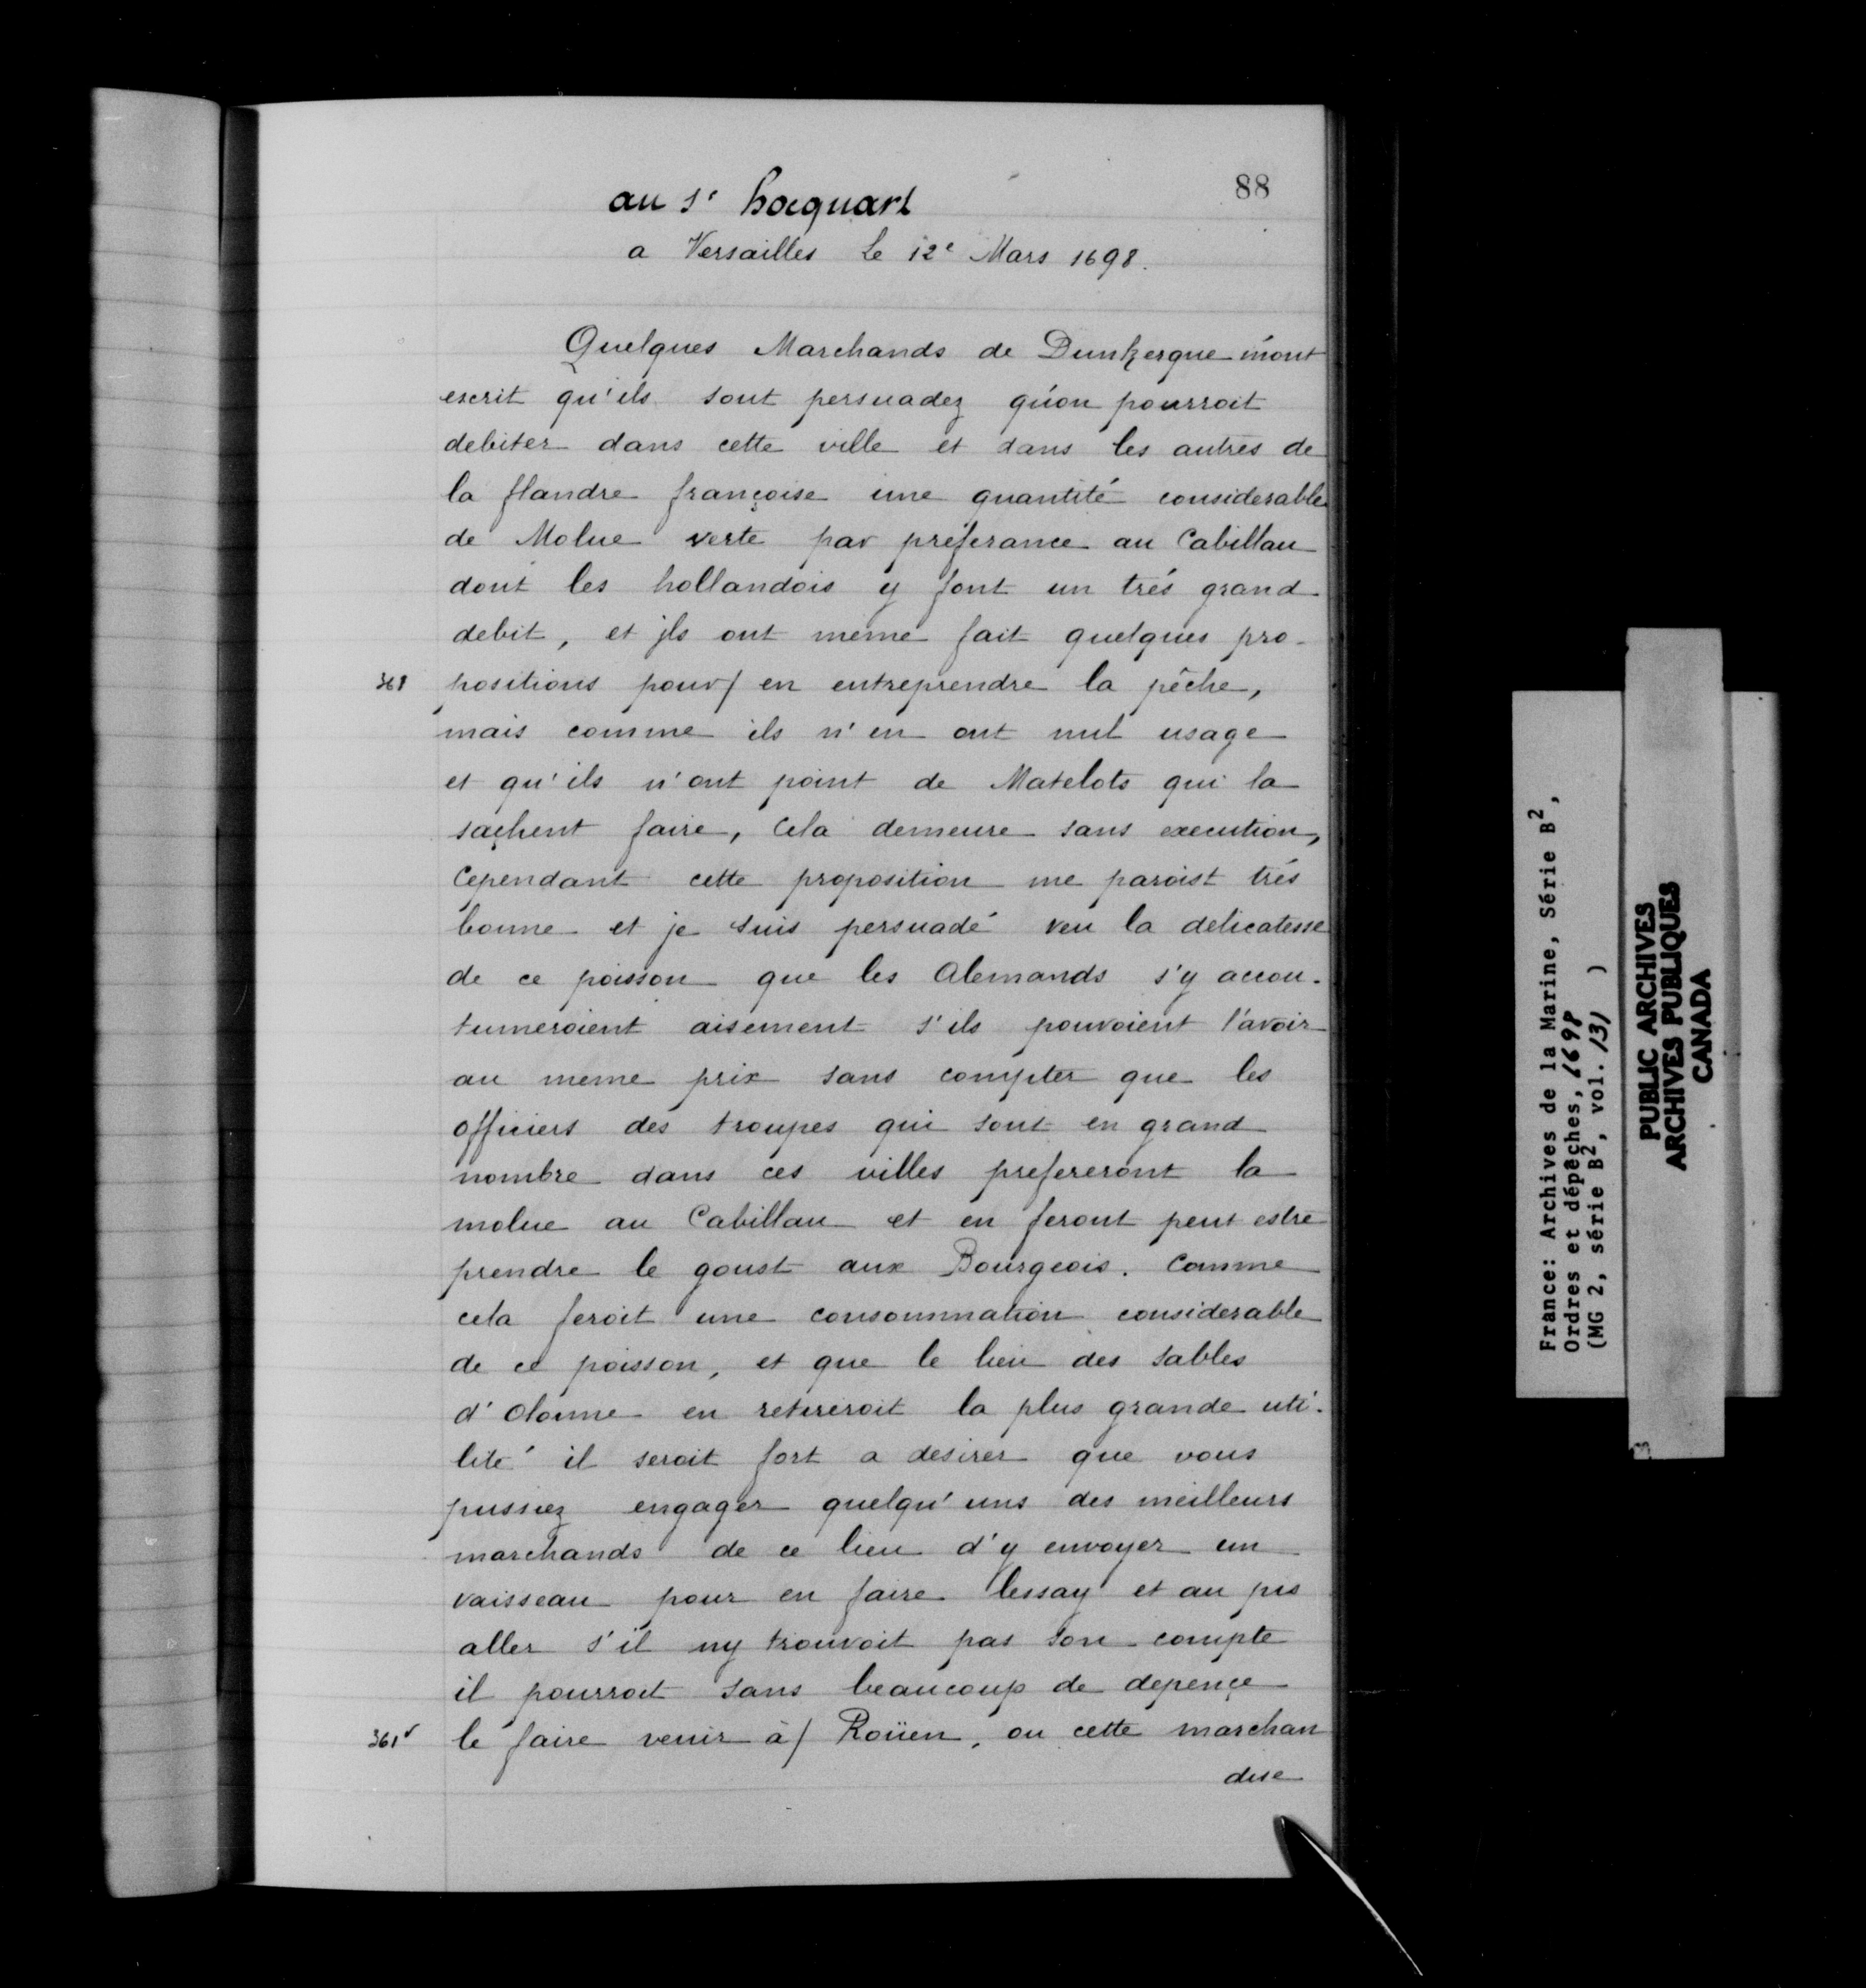 88
au Sr hocquart
a Versailles Le 12e Mars 1698.
Quelques Marchands de Dunkerque m'ont
escrit qu'ils sont persuadez qu'on pourroit
debiter dans cette ville et dans les autres de
la flandre françoise une quantité considerable
de Molue verte par préferance au Cabillau
dont les hollandois y font un trés grand
debit, et jls ont meme fait quelques pro-
361 positions pour/ en entreprendre la pêche,
mais comme ils n'en ont nul usage
et qu'ils n'ont point de Matelots qui la
saçhent faire, Cela demeure sans execution,
Cependant cette proposition me paroist trés
bonne et je suis persuadé veu la delicatesse
de ce poisson que les Alemands s'y accou-
tumeroient aisement s'ils pouvoient l'avoir
au meme prix sans compter que les
officiers des troupes qui sont en grand
nombre dans ces villes prefereront la
molue au Cabillau et en feront peut estre
prendre le goust aux Bourgeois. Comme
cela feroit une consommation considerable
de ce poisson, et que le lieu des sables
d'Olonne en retireroit la plus grande uti-
lité il seroit fort a desirer que vous
pussiez engager quelqu'uns des meilleurs
marchands de ce lieu d'y envoyer un
vaisseau pour en faire lessay et au pis
aller s'il ny trouvoit pas son compte
il pourroit sans beaucoup de depençe
361v le faire venir à/ Roüen, ou cette marchan
dise
France: Archives de la Marine, Série B2,
Ordres et dépêches, 1698
(MG 2, série B2, vol. 131 )
PUBLIC ARCHIVES
ARCHIVES PUBLIQUES
CANADA